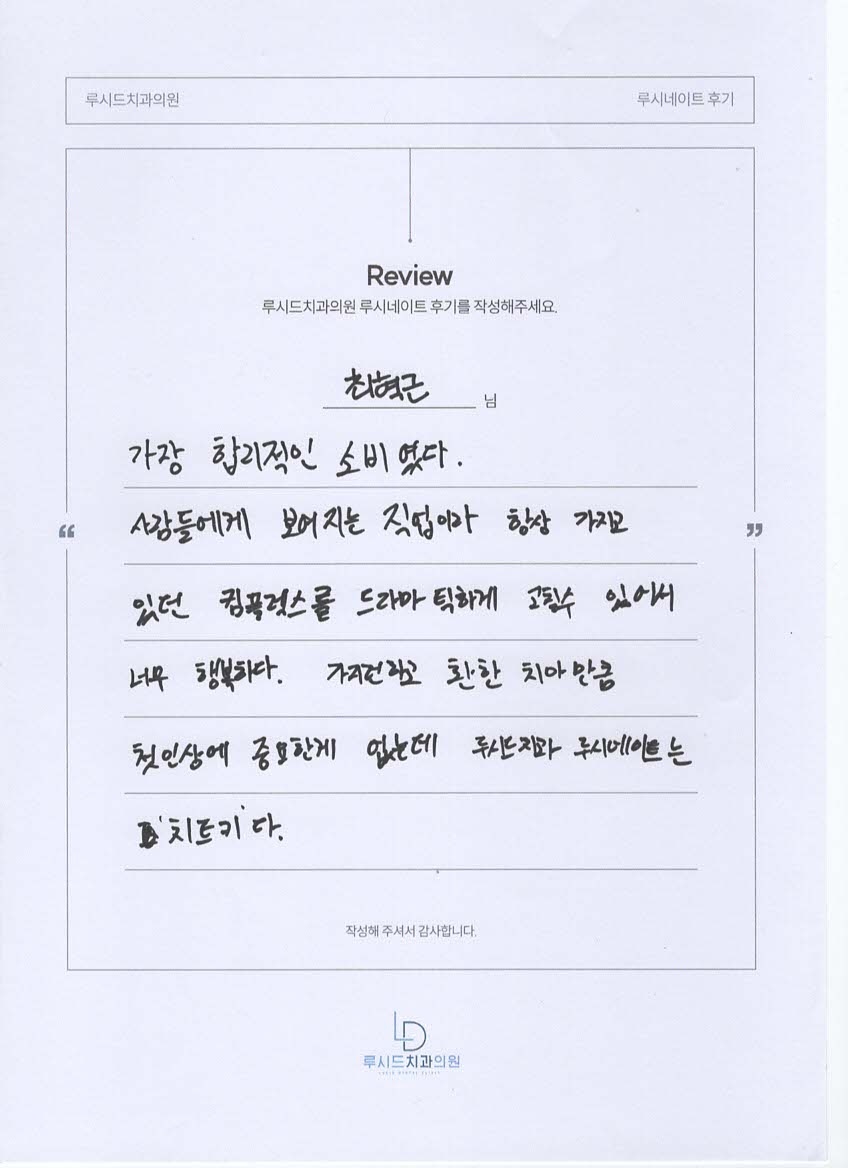 루시드치과의원 루시네이트 후기
Review
루시드치과의원 루시네이트 후기를 작성해주세요.
최혁근 님
가장 합리적인 소비였다.
사람들에게 보여지는 직업이라 항상 가지고
있던 컴플렉스를 드라마틱하게 고칠수 있어서
너무 행복하다. 가지런하고 환한 치아만큼
첫인상에 중요한게 없는데 루시드치과 루시네이트는
'치트키'다.
작성해 주셔서 감사합니다.
루시드치과의원